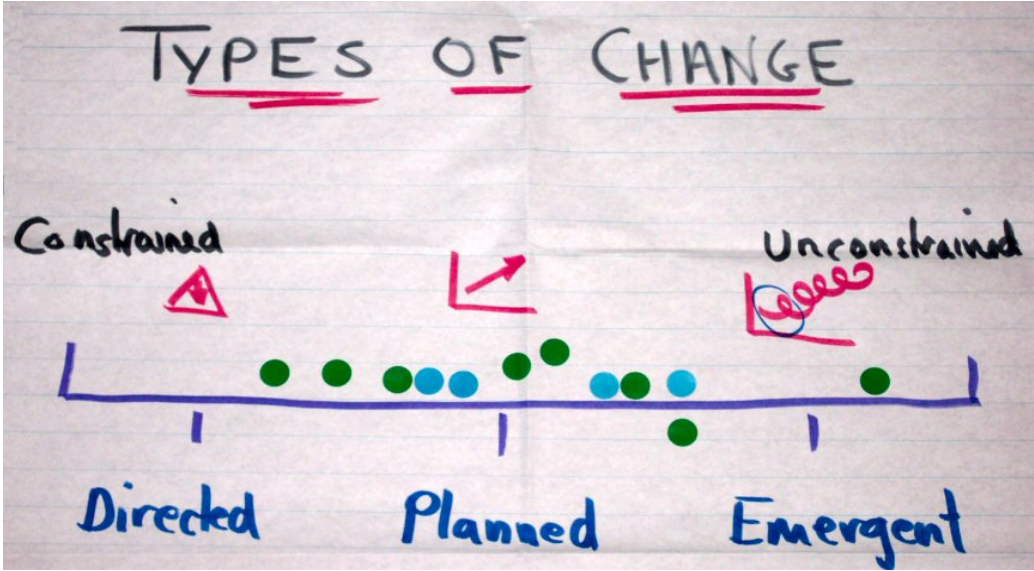 TYPES OF CHANGE
Constrained Unconstrained
Directed Planned Emergent